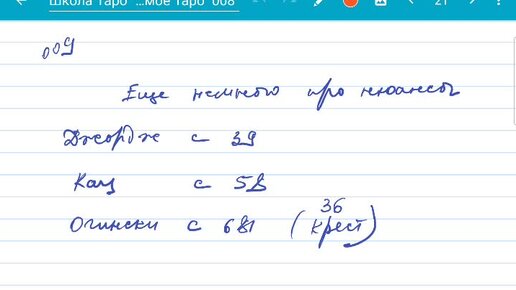 Школа Таро ...мое Таро 008
21
009
Еще немного про нюансы
Джордж с 39
Кац с 58
Огински с 681 (36 Крест)